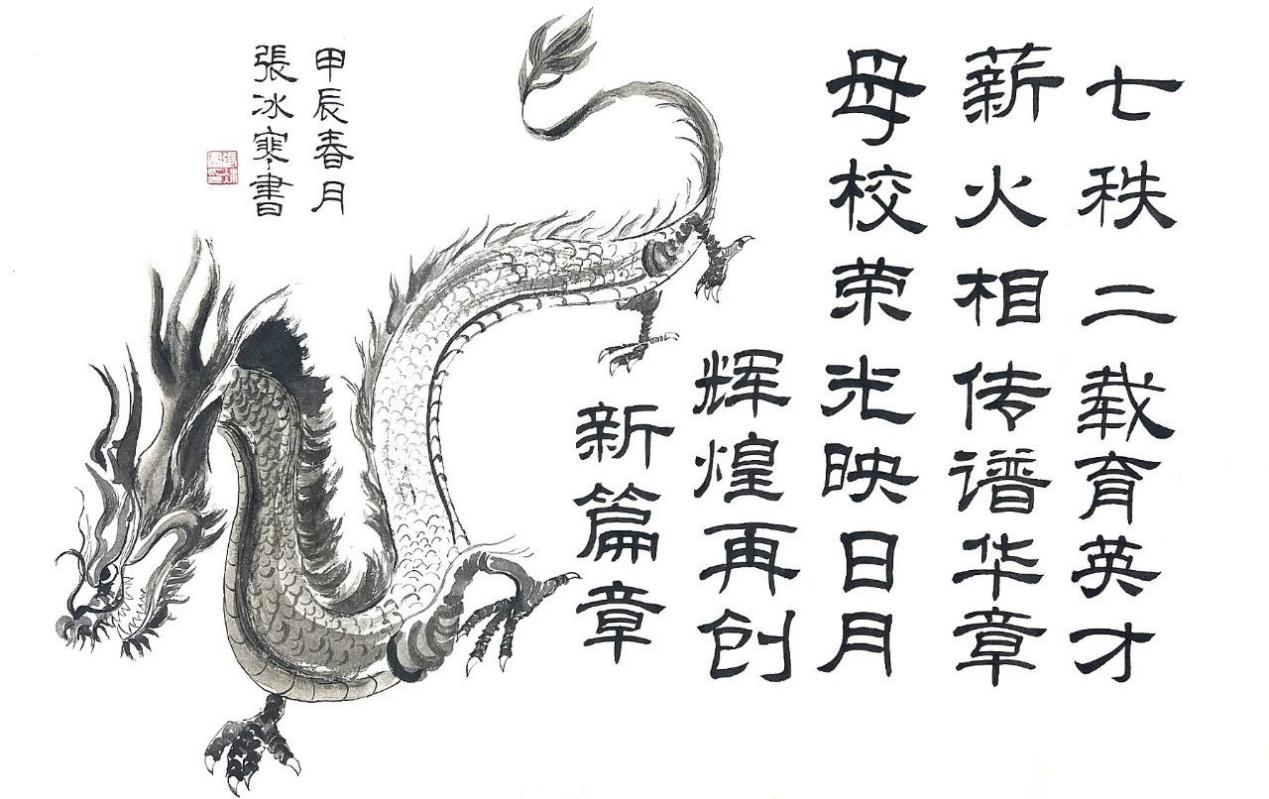 七秩二载育英才
薪火相传谱华章
母校荣光映日月
辉煌再创
新篇章
甲辰春月
張冰寒書